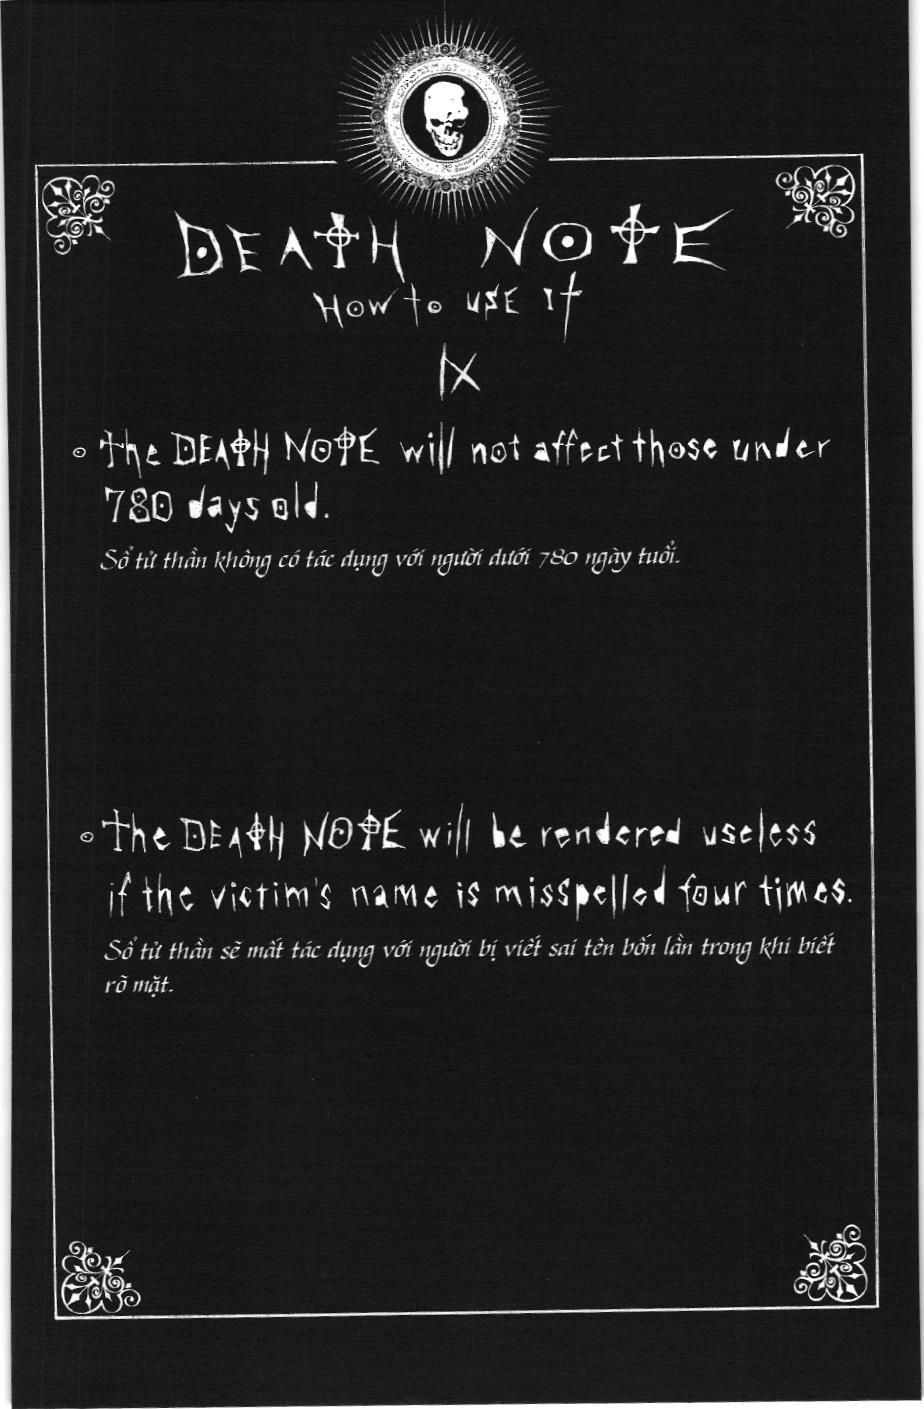 DEATH NOTE
HOW to USE It
IX
The DEATH NOTE will not affect those under
780 days old.
Sổ tử thần không có tác dụng với người dưới 780 ngày tuổi.
The DEATH NOTE will be rendered useless
if the victim's name is misspelled four times.
Sổ tử thần sẽ mất tác dụng với người bị viết sai tên bốn lần trong khi biết
rõ mặt.